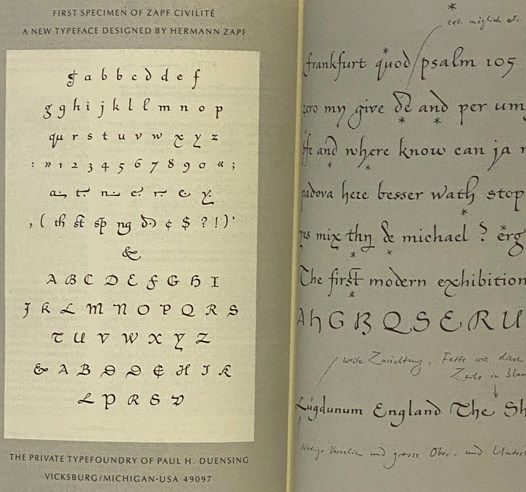 FIRST SPECIMEN OF ZAPF CIVILITÉ
A NEW TYPEFACE DESIGNED BY HERMANN ZAPF
g a b b c d d e f
g g h i j k l l m n o p
qu r s t u v w x y z
: » 1 2 3 4 5 6 7 8 9 0 « ;
a t n e r e y
, ( th st sp ng d ¢ $ ? ! ) '
&
A B C D E F G H I
J K L M N O P Q R S
T U V W X Y Z
& A B D D H I K
L P R S V
THE PRIVATE TYPEFOUNDRY OF PAUL H. DUENSING
VICKSBURG/MICHIGAN-USA 49097
*
evt. möglich
frankfurt quod psalm 105
zero my give de and per um
* *
and where know can ja
* *
padova here besser wath stop
*
mix thn de michael ? erg
* *
The first modern exhibition
*
A h G B Q S E R U
weite Zurichtung, Fette wie diese
Zeile in
Lugdunum England The Sh
Versalien und grosse Ober- und